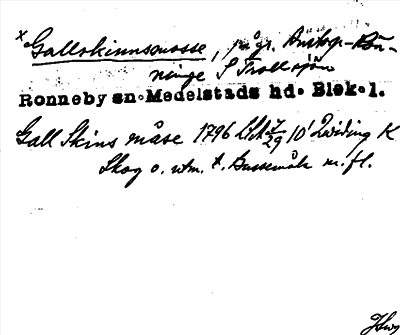 x Gallskinnsmosse, på gr. Anskog-Rön-
ninge S Trollsjön
Ronneby sn. Medelstads hd. Blek.l.
Gall Skins måse 1796 LSA 7/29 10' Zwiding K
Skog o. utm. t. Bussemåla m.fl.